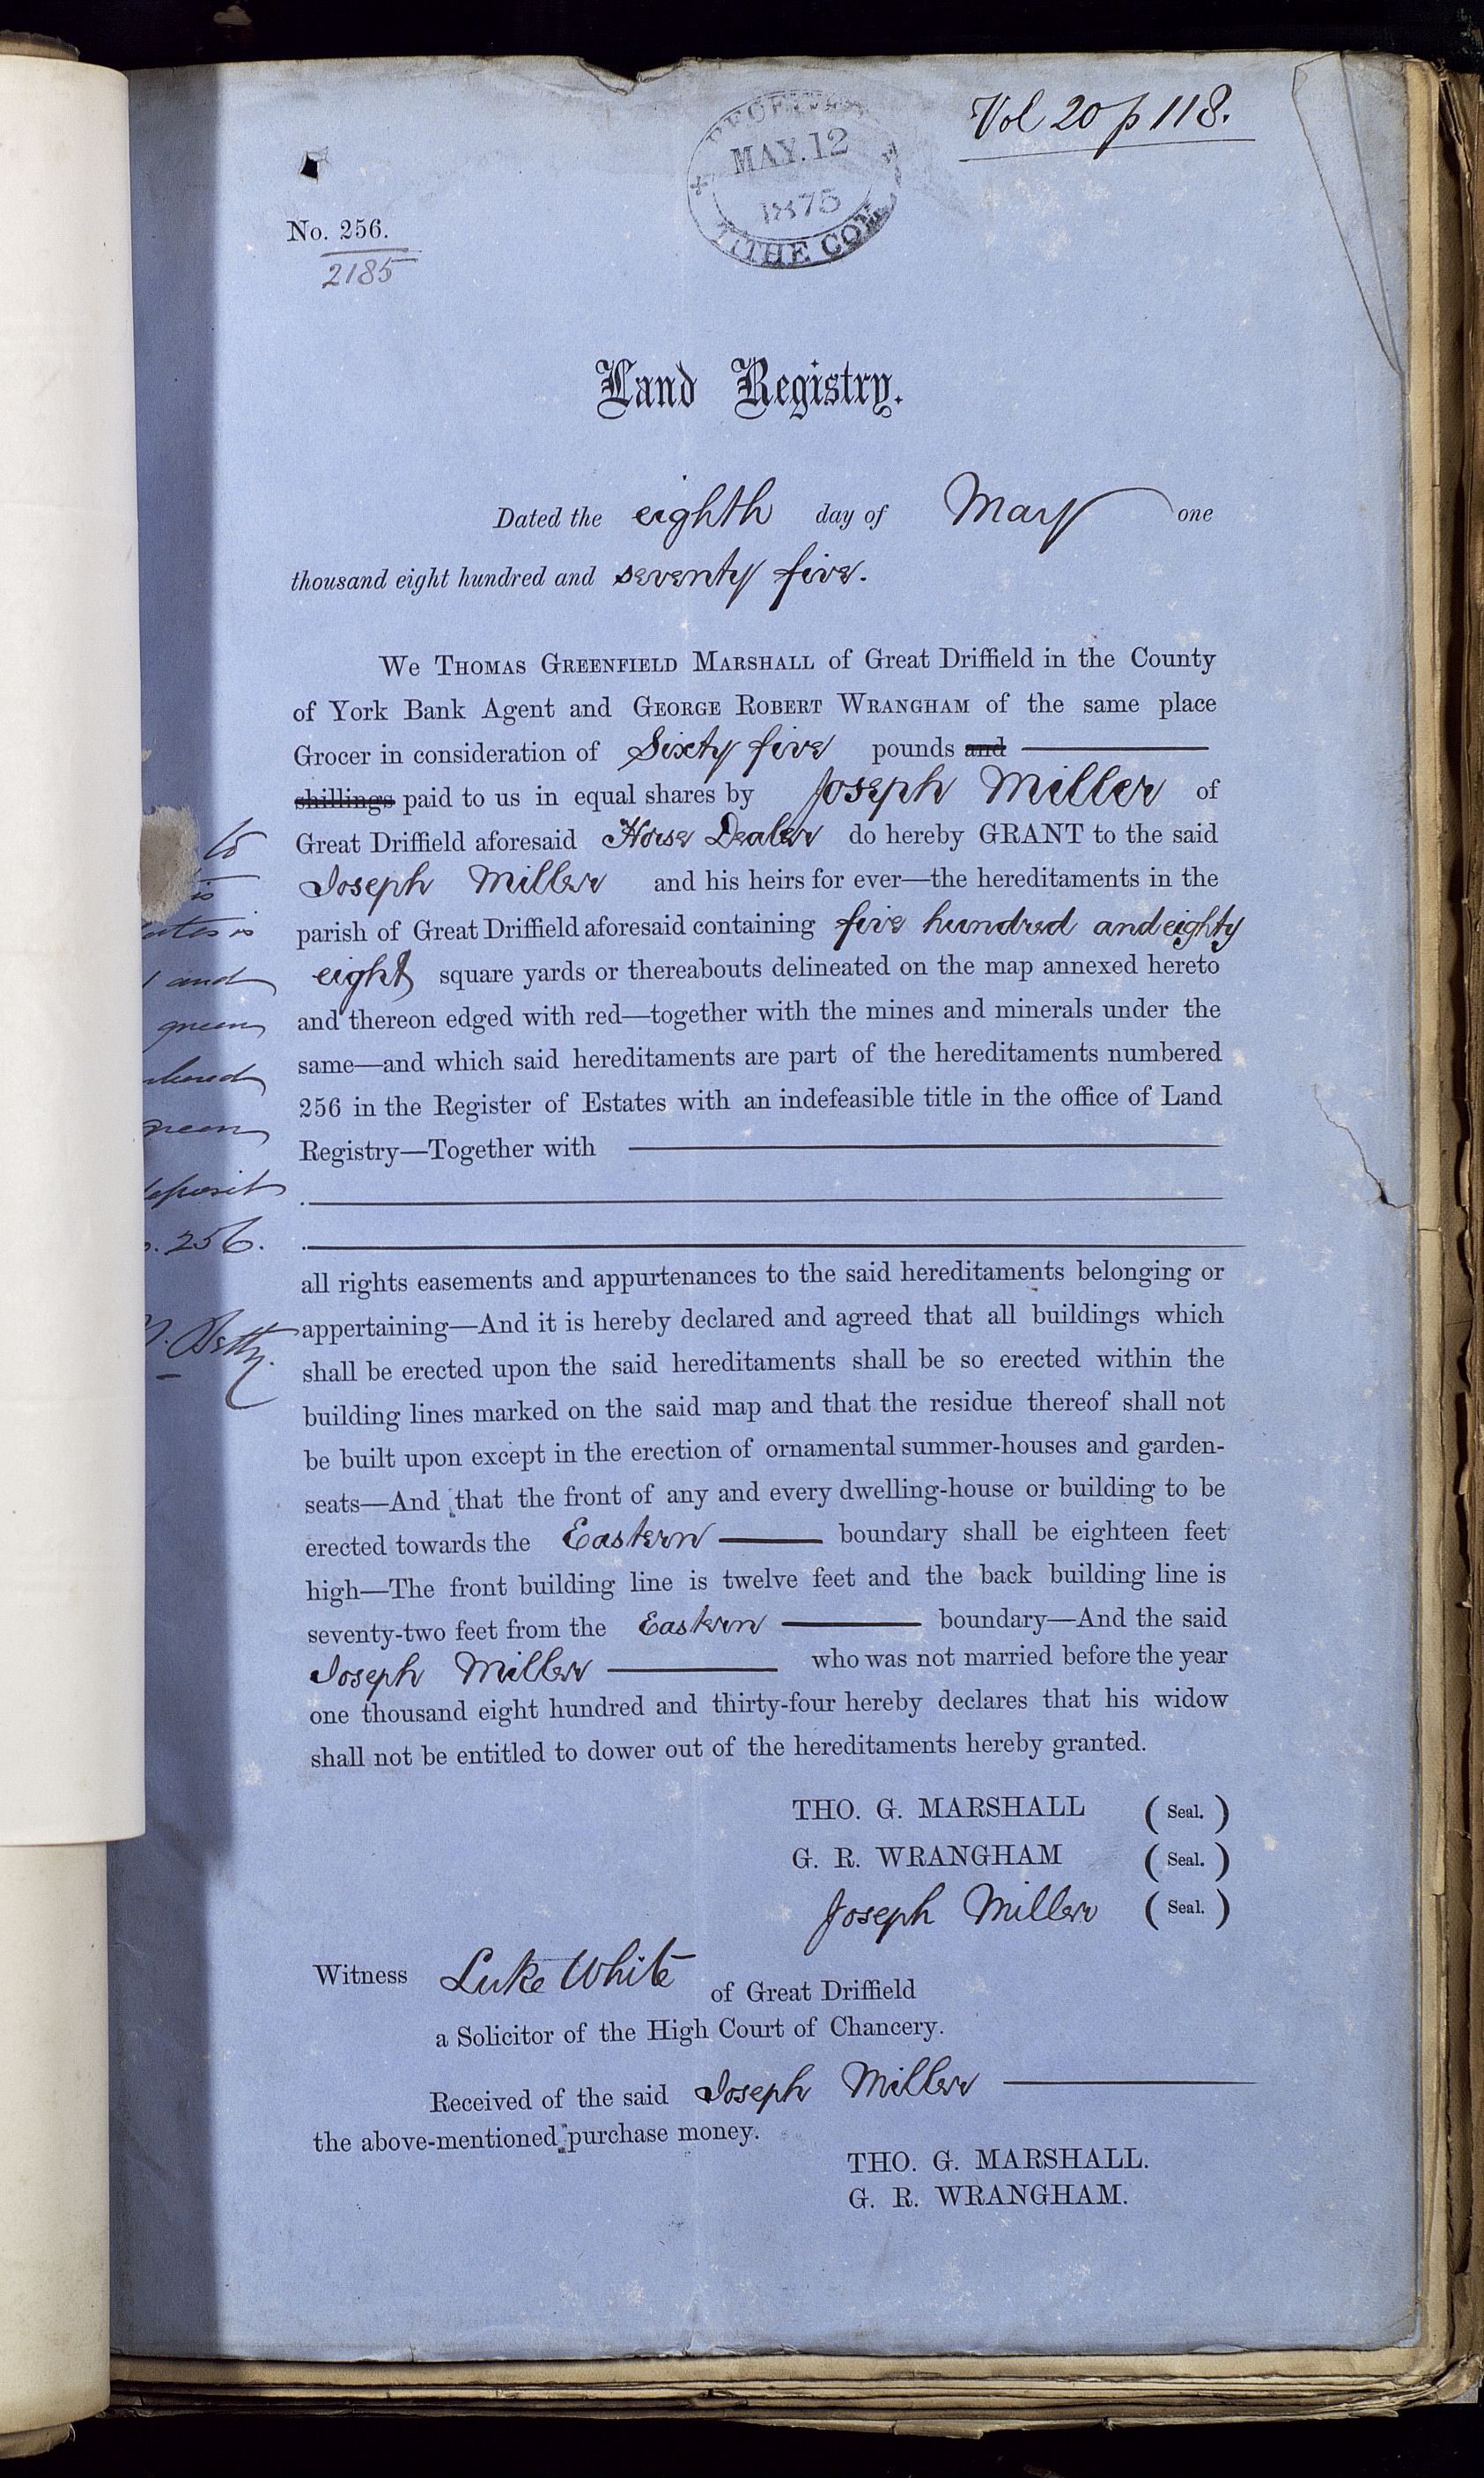 Vol 20 p 118.
MAY.12
1875
TITHE COM
No. 256.
2185
Land Registry.
Dated the eighth day of May one
thousand eight hundred and seventy five.
We THOMAS GREENFIELD MARSHALL of Great Driffield in the County
of York Bank Agent and GEORGE ROBERT WRANGHAM of the same place
Grocer in consideration of Sixty five pounds and
shillings paid to us in equal shares by Joseph Miller of
Great Driffield aforesaid Horse Dealer do hereby GRANT to the said
Joseph Miller and his heirs for ever—the hereditaments in the
parish of Great Driffield aforesaid containing five hundred and eighty
eight square yards or thereabouts delineated on the map annexed hereto
and thereon edged with red—together with the mines and minerals under the
same—and which said hereditaments are part of the hereditaments numbered
256 in the Register of Estates with an indefeasible title in the office of Land
Registry—Together with
all rights easements and appurtenances to the said hereditaments belonging or
appertaining—And it is hereby declared and agreed that all buildings which
shall be erected upon the said hereditaments shall be so erected within the
building lines marked on the said map and that the residue thereof shall not
be built upon except in the erection of ornamental summer-houses and garden-
seats—And that the front of any and every dwelling-house or building to be
erected towards the Eastern boundary shall be eighteen feet
high—The front building line is twelve feet and the back building line is
seventy-two feet from the Eastern boundary—And the said
Joseph Miller who was not married before the year
one thousand eight hundred and thirty-four hereby declares that his widow
shall not be entitled to dower out of the hereditaments hereby granted.
THO. G. MARSHALL (Seal.)
G. R. WRANGHAM (Seal.)
Joseph Miller (Seal.)
Witness Luke White of Great Driffield
a Solicitor of the High Court of Chancery.
Received of the said Joseph Miller
the above-mentioned purchase money.
THO. G. MARSHALL.
G. R. WRANGHAM.
to
is
is
and
green
256.